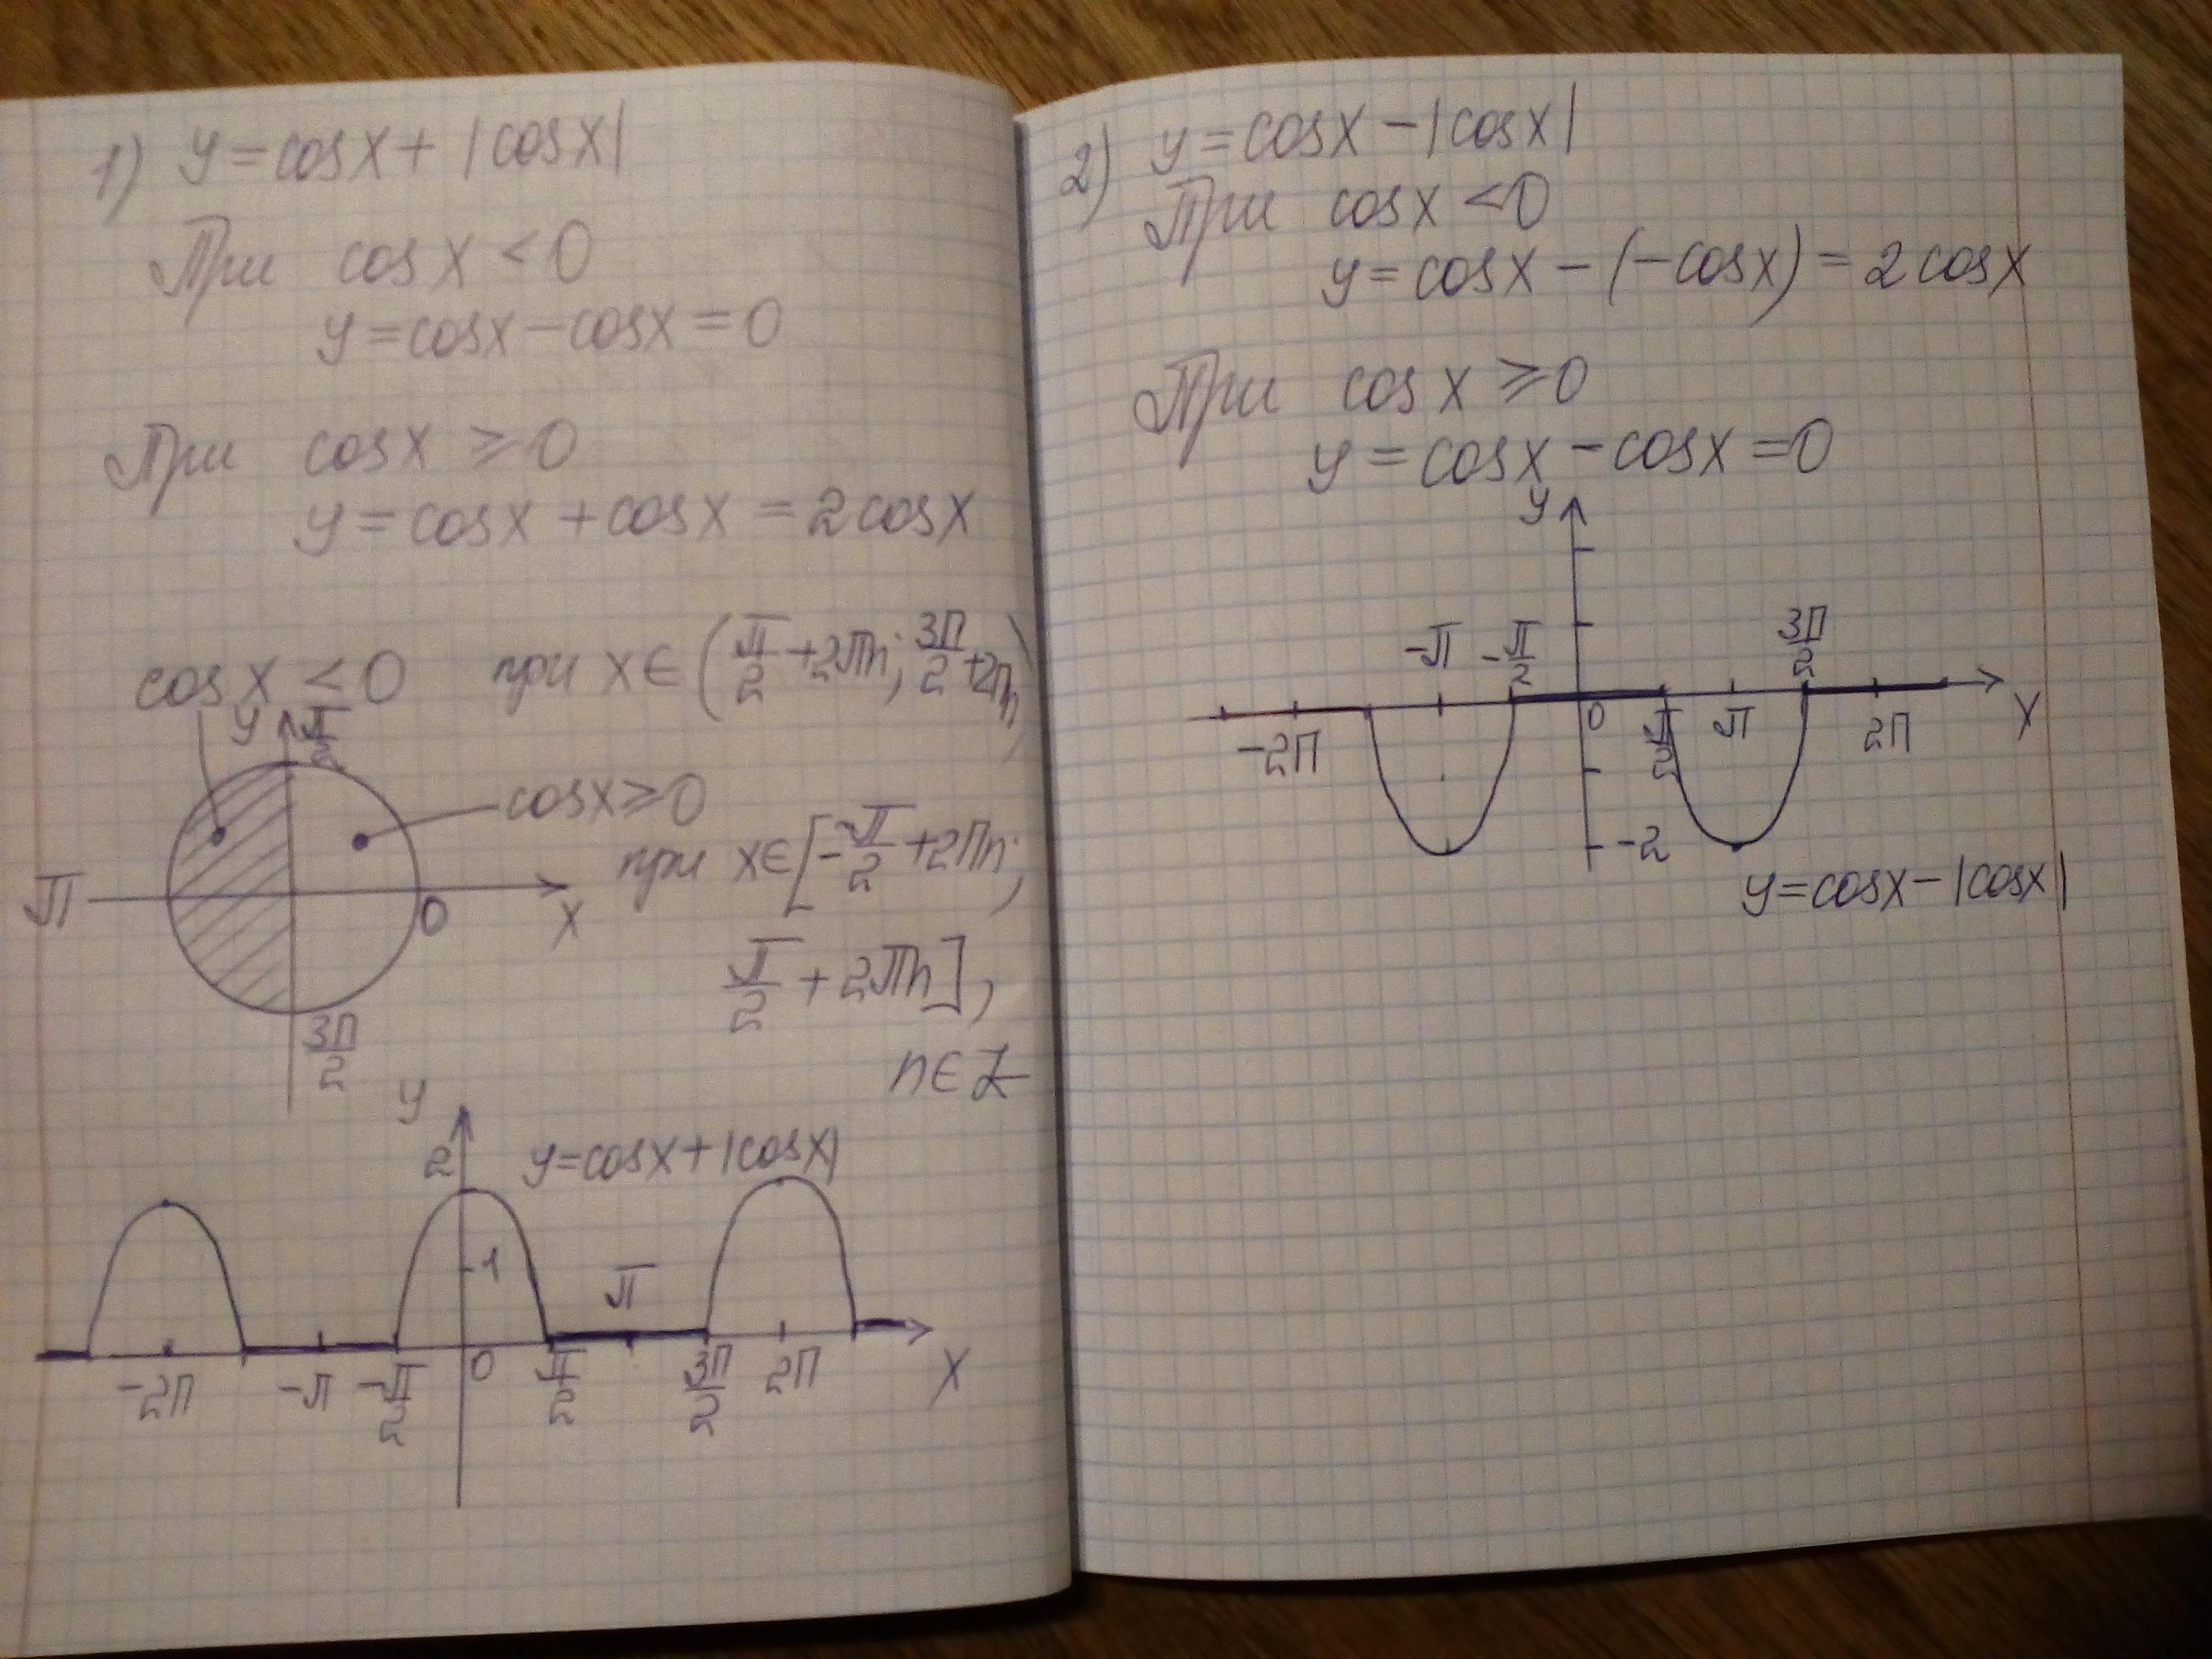 1) y=cosx+|cosx|
При cosx<0
y=cosx-cosx=0
При cosx⩾0
y=cosx+cosx=2cosx
cosx<0 при x∈(π/2+2πn; 3π/2+2πn)
y π/2
cosx⩾0
при x∈[-π/2+2πn;
π 0 x
π/2+2πn],
3π/2
n∈Z
y
2 y=cosx+|cosx|
1
π
-2π -π -π/2 0 π/2 3π/2 2π x
2) y=cosx-|cosx|
При cosx<0
y=cosx-(-cosx)=2cosx
При cosx⩾0
y=cosx-cosx=0
y
-π -π/2 3π/2
-2π 0 π/2 π 2π x
-2
y=cosx-|cosx|